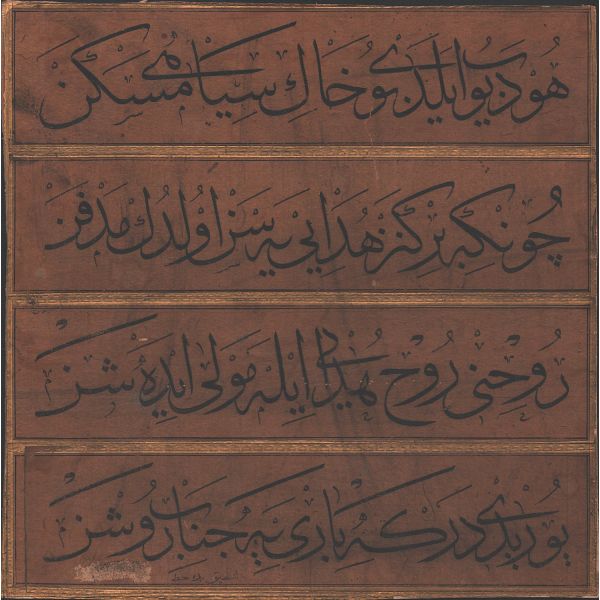 هو دیوب ایلدی بو خاك سیاهی مسكن
چونكه بر كنز هدایی یه سن اولدك مدفن
روحنی روح هدی ایله مولی ایده شن
یوریدی دركه باری یه جناب روشن